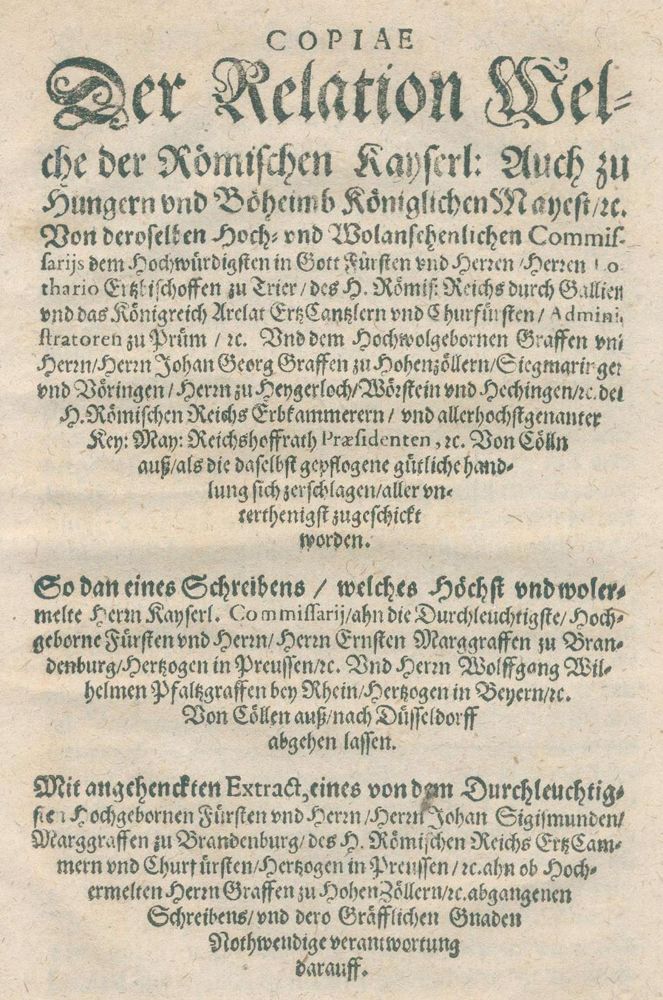 COPIAE
Der Relation Wel-
che der Römischen Kayserl: Auch zu
Hungern vnd Böheimb Königlichen Mayest/ꝛc.
Von deroselben Hoch- vnd Wolansehenlichen Commis-
sarijs dem Hochwürdigsten in Gott Fürsten vnd Herren/Herren Lo
thario Ertzbischoffen zu Trier/des H. Römis: Reichs durch Gallien
vnd das Königreich Arelat ErtzCantzlern vnd Churfürsten/Admini,
stratoren zu Prüm/ꝛc. Vnd dem Hochwolgebornen Graffen vnd
Herrn/Herrn Johan Georg Graffen zu Hohenzöllern/Siegmaringer
vnd Vöringen/Herrn zu Heygerloch/Wörstein vnd Hechingen/ꝛc.des
H. Römischen Reichs Erbkammerern/vnd allerhochstgenanter
Key: May: Reichshoffrath Præsidenten,ꝛc. Von Cölln
auß/als die daselbst gepflogene gütliche hand-
lung sich zerschlagen/aller vn-
terthenigst zugeschickt
worden.
So dan eines Schreibens/welches Höchst vnd woler-
melte Herrn Kayserl. Commissarij/ahn die Durchleuchtigste/Hoch-
geborne Fürsten vnd Herrn/Herrn Ernsten Marggraffen zu Bran-
denburg/Hertzogen in Preussen/ꝛc. Vnd Herrn Wolffgang Wil-
helmen Pfaltzgraffen bey Rhein/Hertzogen in Beyern/ꝛc.
Von Cöllen auß/nach Düsseldorff
abgehen lassen.
Mit angehenckten Extract, eines von dem Durchleuchtig-
sten Hochgebornen Fürsten vnd Herrn/Herrn Johan Sigismunden/
Marggraffen zu Brandenburg/des H. Römischen Reichs ErtzCam-
mern vnd Churfürsten/Hertzogen in Preussen/ꝛc.ahn ob Hoch-
ermelten Herrn Graffen zu HohenZöllern/ꝛc.abgangenen
Schreibens/vnd dero Gräfflichen Gnaden
Nothwendige verantwortung
darauff.